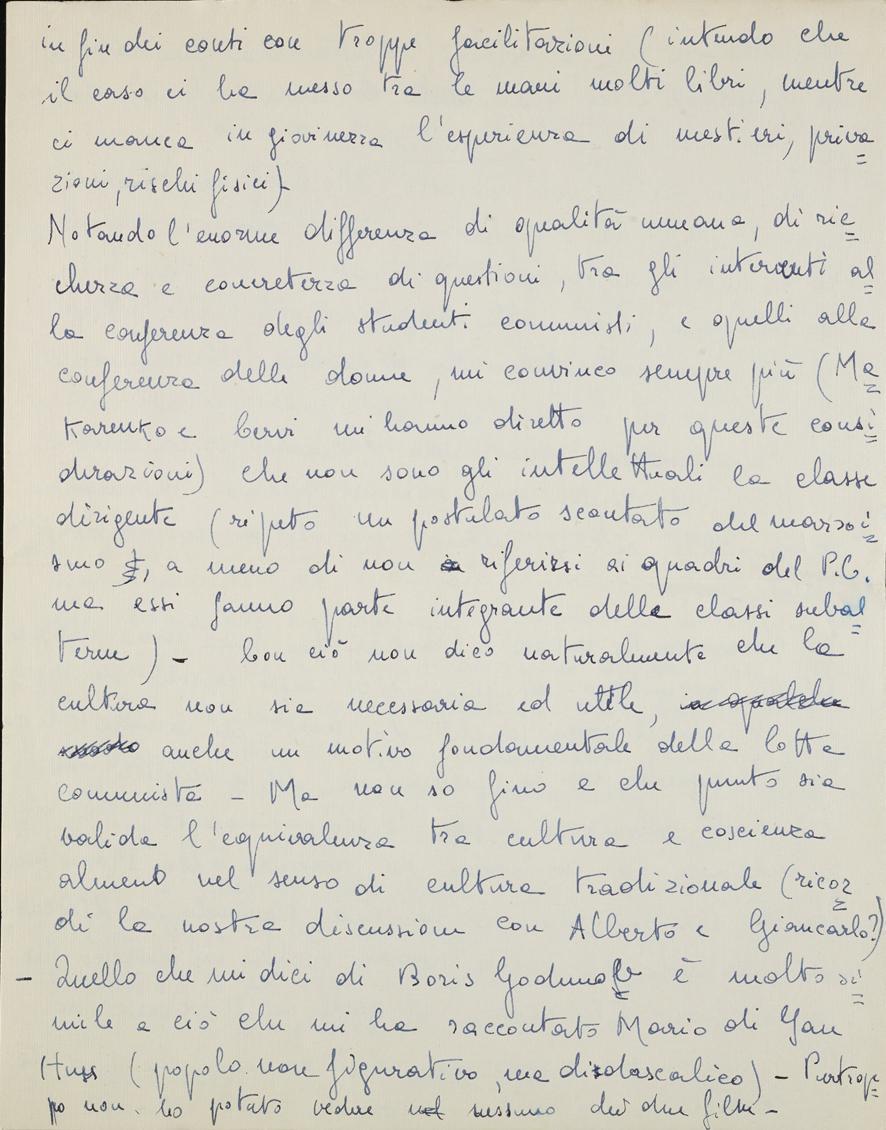 in fin dei conti con troppe facilitazioni (intendo che
il caso ci ha messo tra le mani molti libri, mentre
ci manca in giovinezza l'esperienza di mestieri, priva=
zioni, rischi fisici)-
Notando l'enorme differenza di qualità umana, di ric=
chezza e concretezza di questioni, tra gli interventi al=
la conferenza degli studenti comunisti, e quelli alla
conferenza delle donne, mi convinco sempre più (Ma=
Karenko e Cervi mi hanno diretto per queste consi=
derazioni) che non sono gli intellettuali la classe
dirigente (ripeto un postulato scontato del marxi=
smo, a meno di non riferirsi ai quadri del P.C.
ma essi fanno parte integrante delle classi subal=
terne) - Con ciò non dico naturalmente che la
cultura non sia necessaria ed utile,
anche un motivo fondamentale della lotta
comunista - Ma non so fino a che punto sia
valida l'equivalenza tra cultura e coscienza
almeno nel senso di cultura tradizionale (ricor=
di la nostra discussione con Alberto e Giancarlo?)
- Quello che mi dici di Boris Godunof è molto si=
mile a ciò che mi ha raccontato Mario di Yan
Huss (popolo non figurativo, ma didascalico) - Purtrop=
po non ho potuto vedere nessuno dei due films -